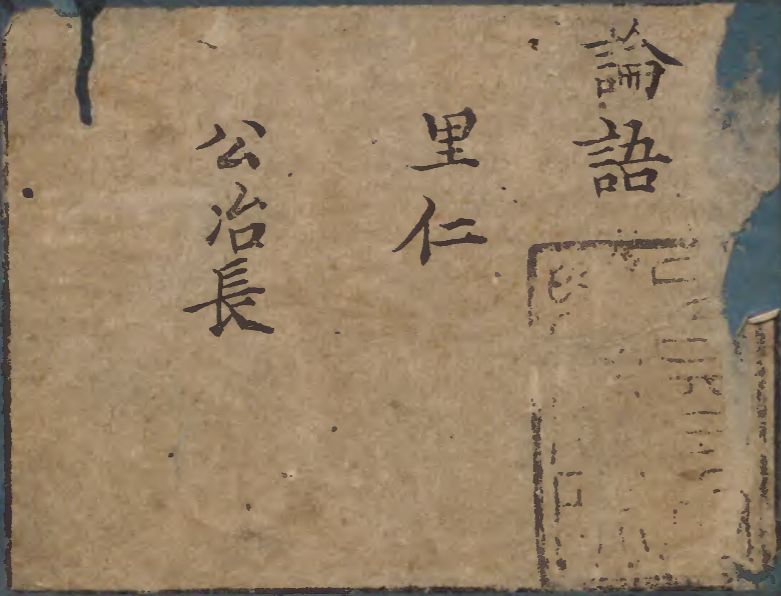 論語
里仁
公冶長